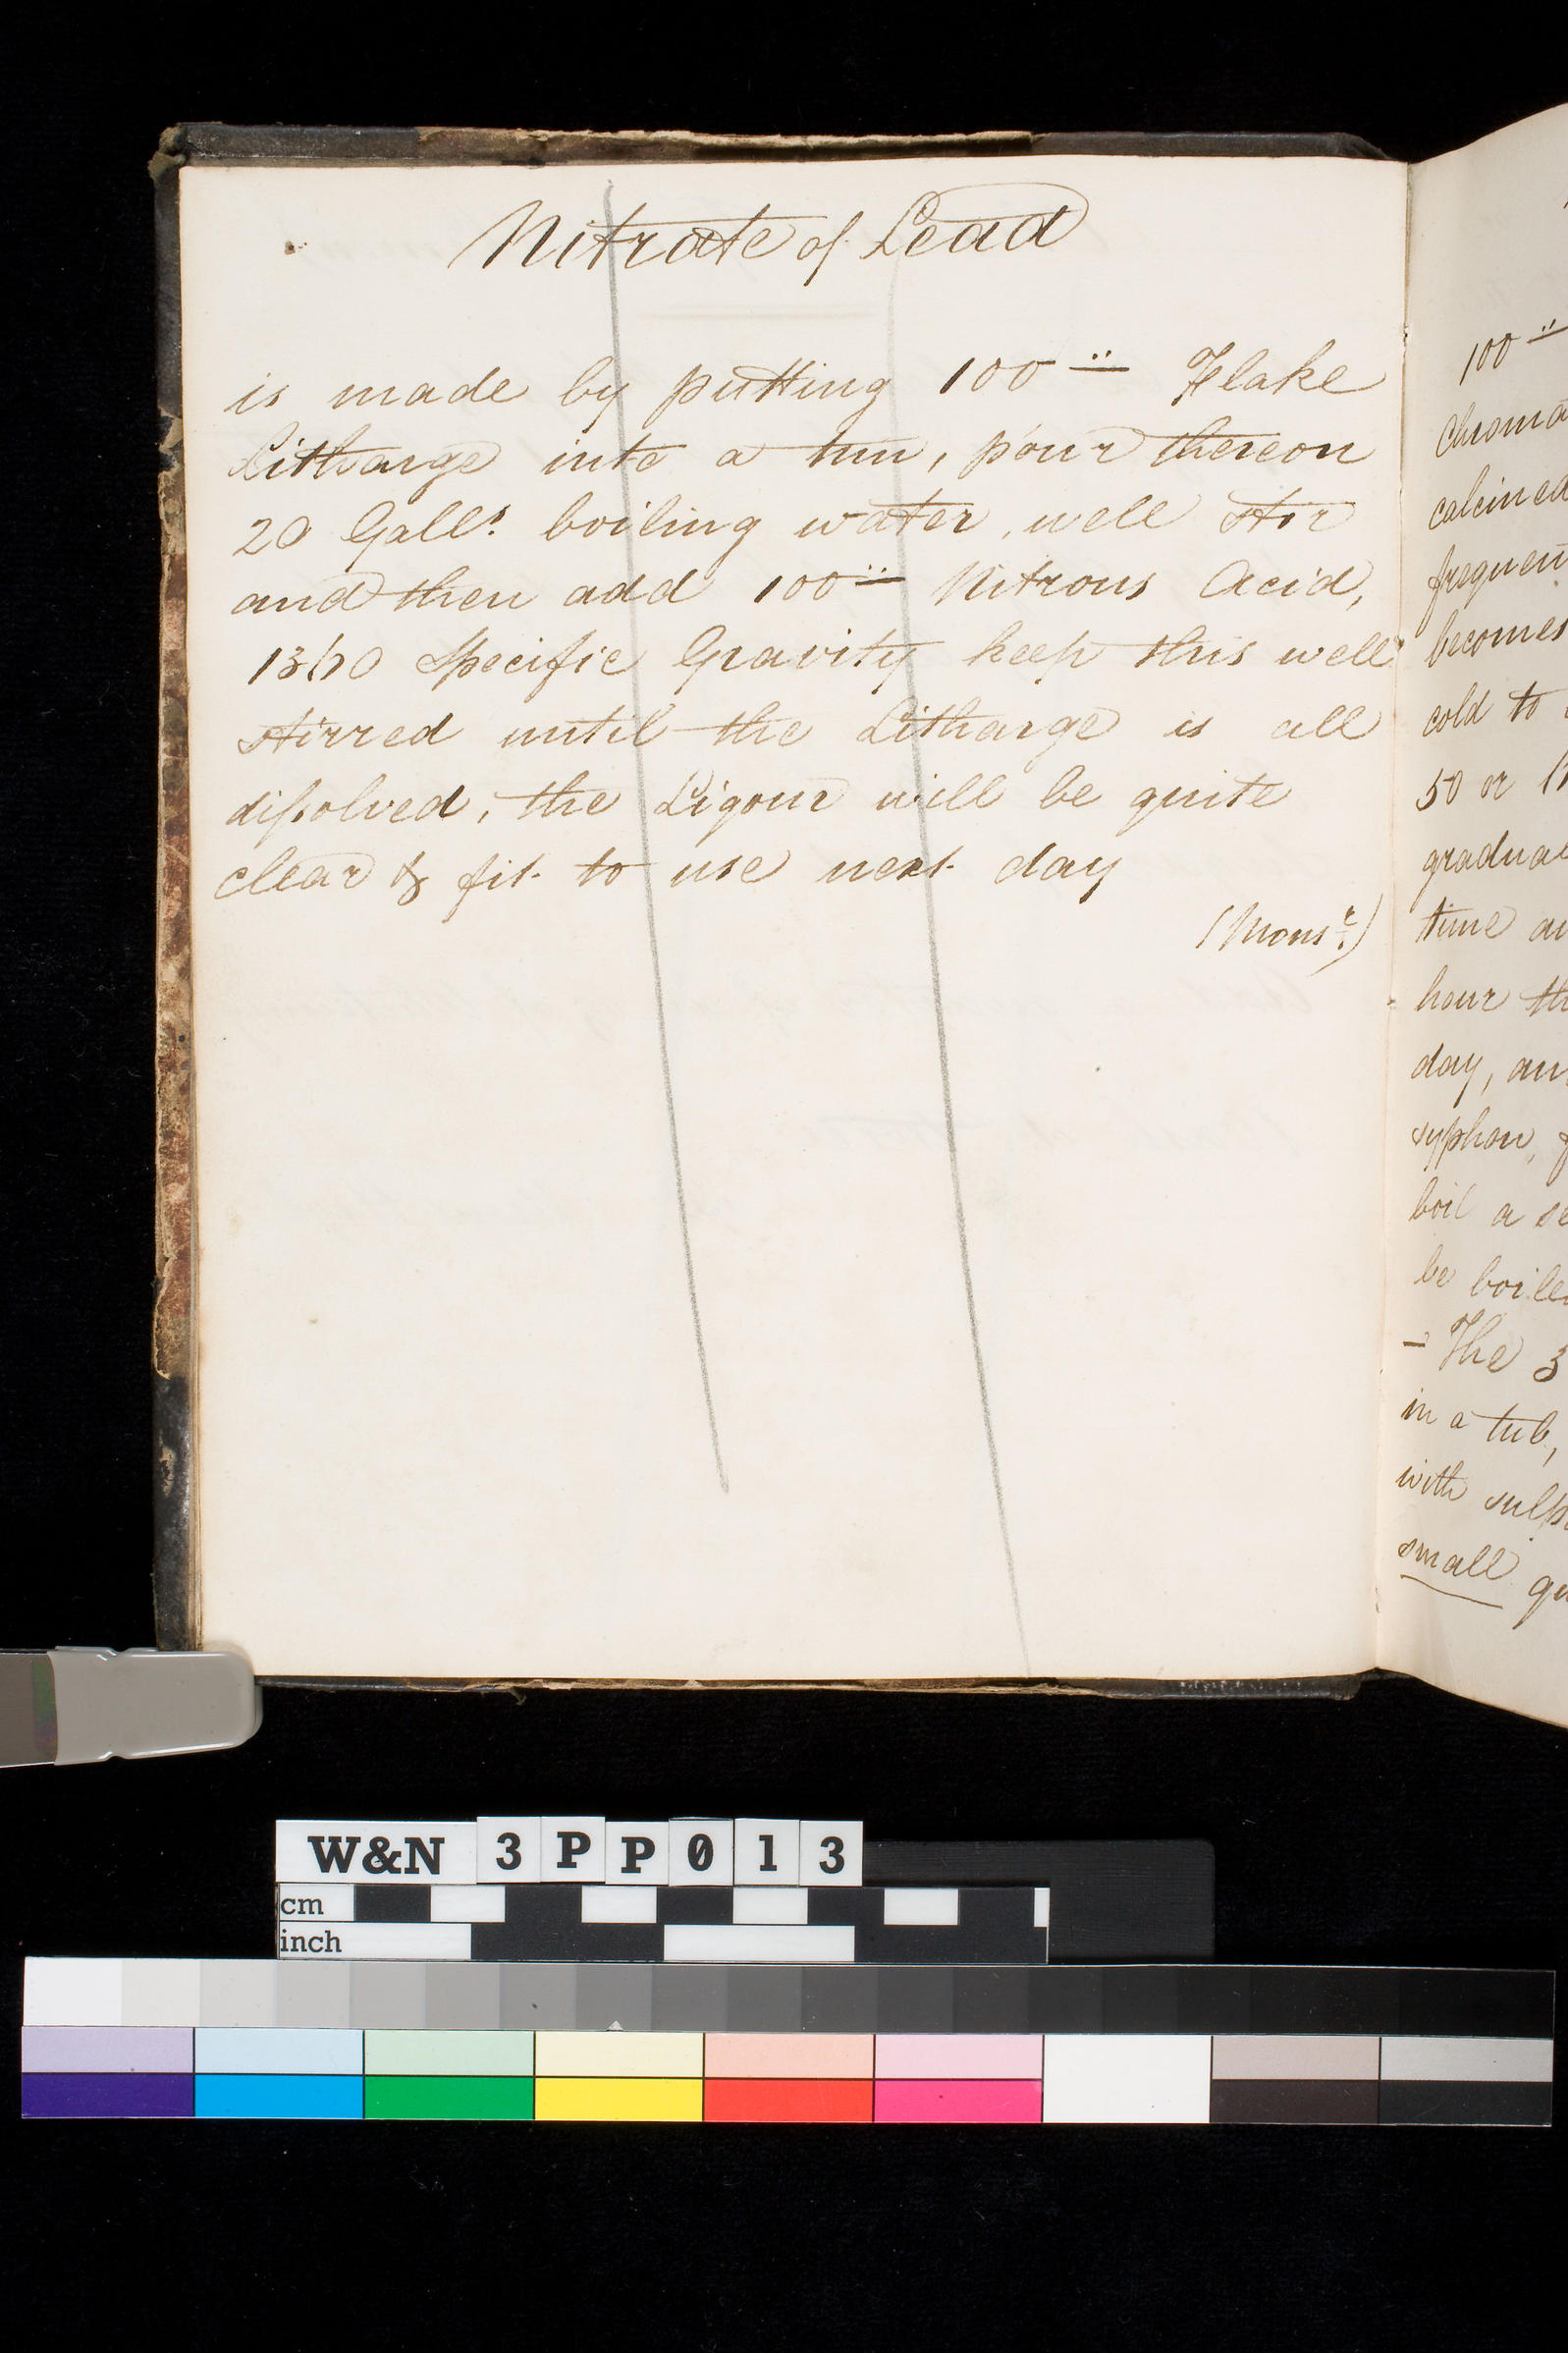 Nitrate of Lead
is made by putting 100 Flake
Litharge into a tun, pour thereon
20 Galls. boiling water, well stir
and then add 100 Nitrous Acid,
1360 Specific Gravity keep this well
stirred until the Litharge is all
dissolved, the Liqour will be quite
clear & fit to use next day
(Monsr.)
100
Chroma
calcined
frequen
becomes
cold to
50 or
gradual
time an
hour th
day, an
syphon,
boil a se
be boile
- The 3
in a tub,
with sulp
small qu
W&N 3PP013
cm
inch